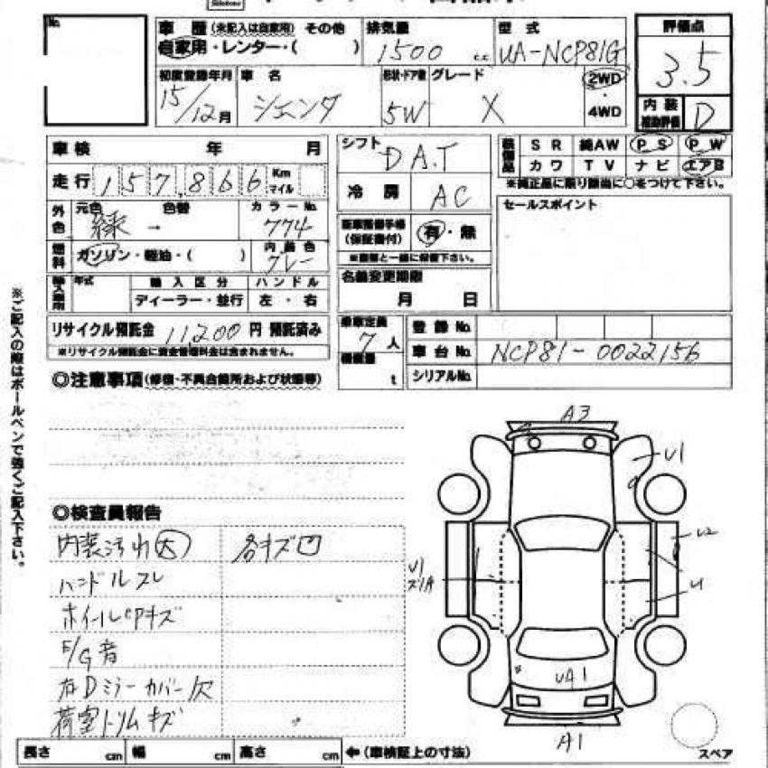 No.
車 歴 (未記入は自家用) その他
自家用・レンター・( )
排気量
1500 c.c
型 式
UA-NCP81G
評価点
3.5
初度登録年月
15/12月
車 名
シエンタ
形状・ドア数
5W
グレード
X
2WD
・
4WD
内 装
補助評価
D
車 検 年 月
シフト
D A.T
装備品
S R 純AW P S P W
カワ T V ナビ エアB
※純正品に限り該当に○をつけて下さい。
走 行 157,866 Km マイル
冷 房
AC
外色
元色 色替
緑 →
カラーNo.
774
(保証書付)
有・無
※書類と一緒に保管下さい。
セールスポイント
燃料
ガソリン・軽油・( )
内 装 色
グレー
年式
輸 入 区 分
ハ ン ド ル
ディーラー・並行
左 ・ 右
名義変更期限
月 日
リサイクル預託金 11200 円 預託済み
※リサイクル預託金に資金管理料金は含まれません。
乗車定員
7 人
積載量
t
登 録 No.
車 台 No. NCP81-0022156
シリアルNo.
◎注意事項(修復・不具合箇所および状態等)
※ご記入の際はボールペンで強くご記入下さい。
◎検査員報告
内装汚れ(大)
各キズ凹
ハンドルスレ
ホイールcapキズ
E/G音
右Dミラーカバー欠
荷室トリムキズ
A3
U1
U2
U1
U1
UA1
A1
スペア
長さ cm 幅 cm 高さ cm ←(車検証上の寸法)